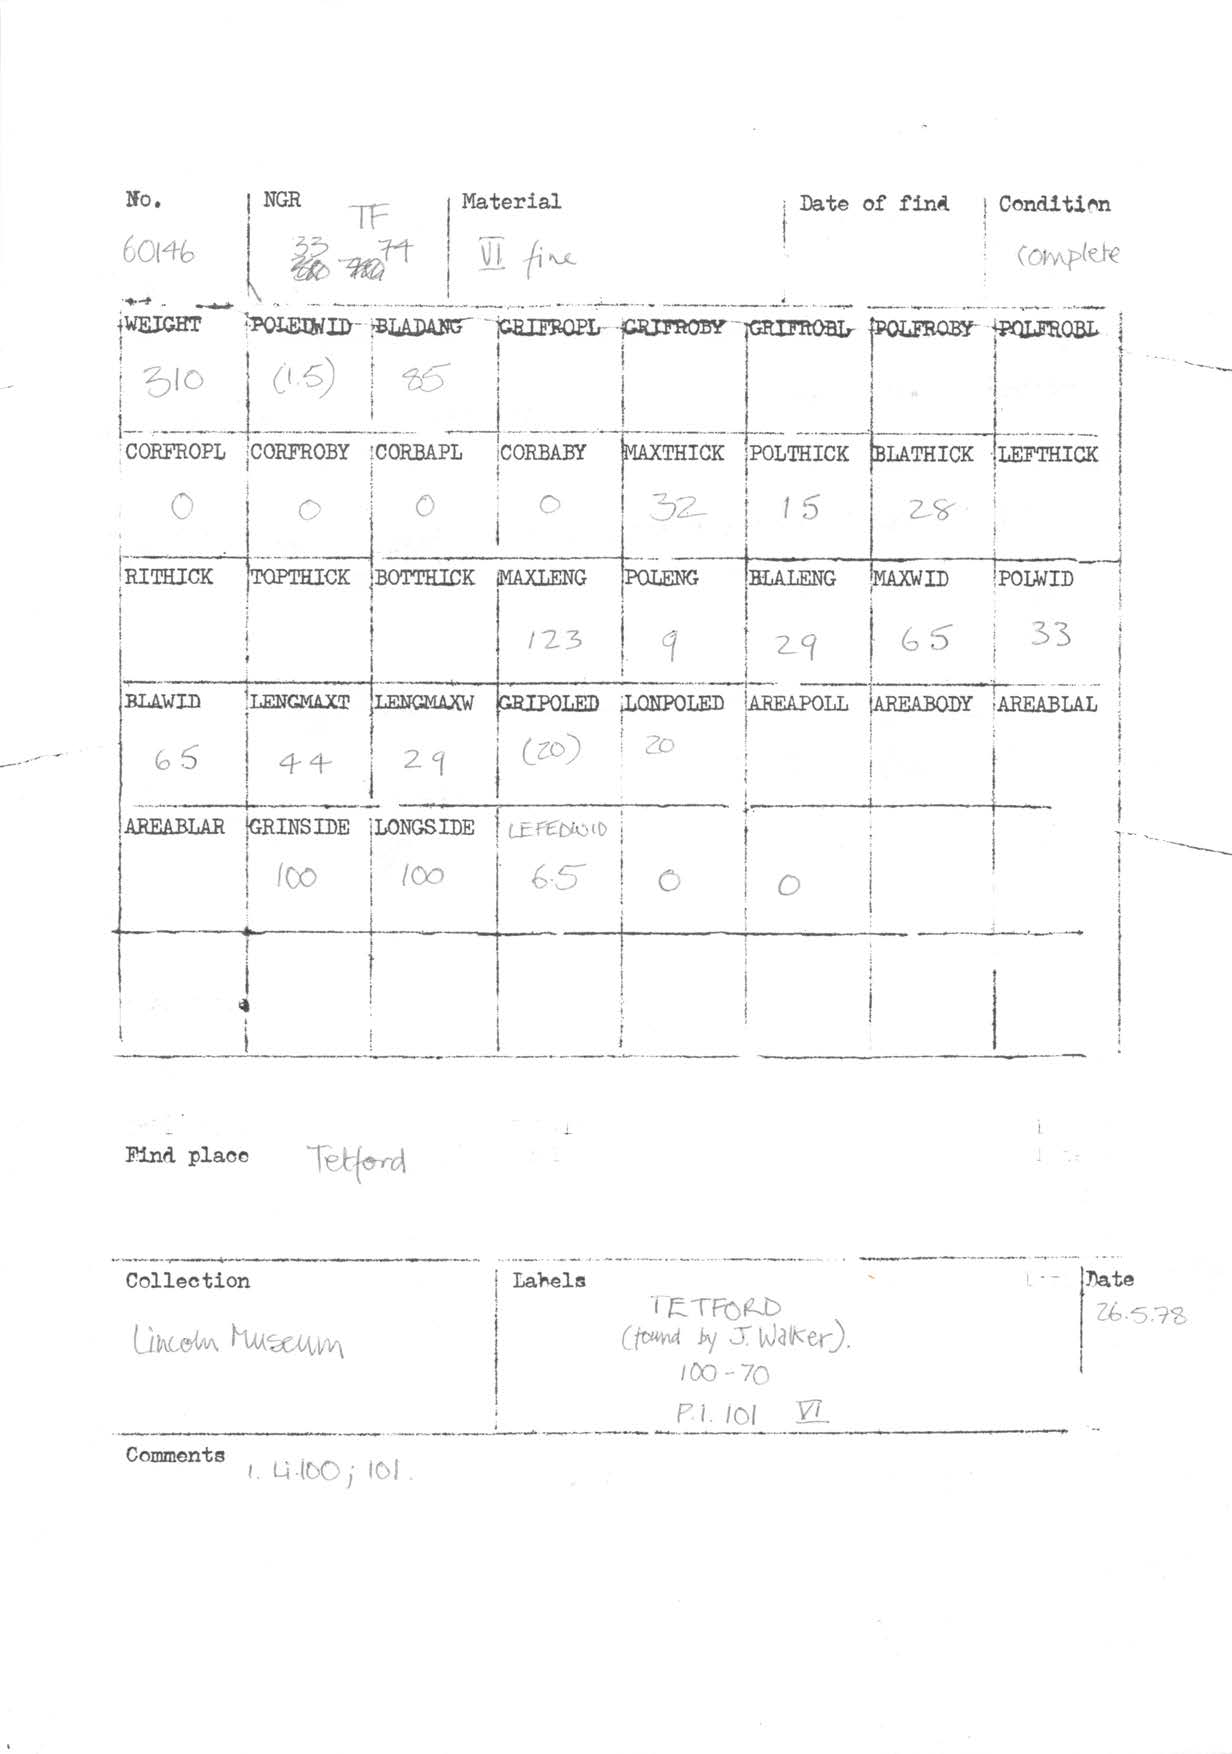 No. NGR Material Date of find Condition
TF
60146 33 74 VI fine complete
WEIGHT POLEDWID BLADANG GRIFROPL GRIFROBY GRIFROBL POLFROBY POLFROBL
310 (1.5) 85
CORFROPL CORFROBY CORBAPL CORBABY MAXTHICK POLTHICK BLATHICK LEFTHICK
0 0 0 0 32 15 28
RITHICK TOPTHICK BOTTHICK MAXLENG POLENG BLALENG MAXWID POLWID
123 9 29 65 33
BLAWID LENGMAXT LENGMAXW GRIPOLED LONPOLED AREAPOLL AREABODY AREABLAL
65 44 29 (20) 20
AREABLAR GRINSIDE LONGSIDE LEFEDWID
100 100 6.5 0 0
Find place Tetford
Collection Labels Date
TETFORD 26.5.78
Lincoln Museum (found by J. Walker).
100-70
P.1. 101 VI
Comments 1. Li.100; 101.